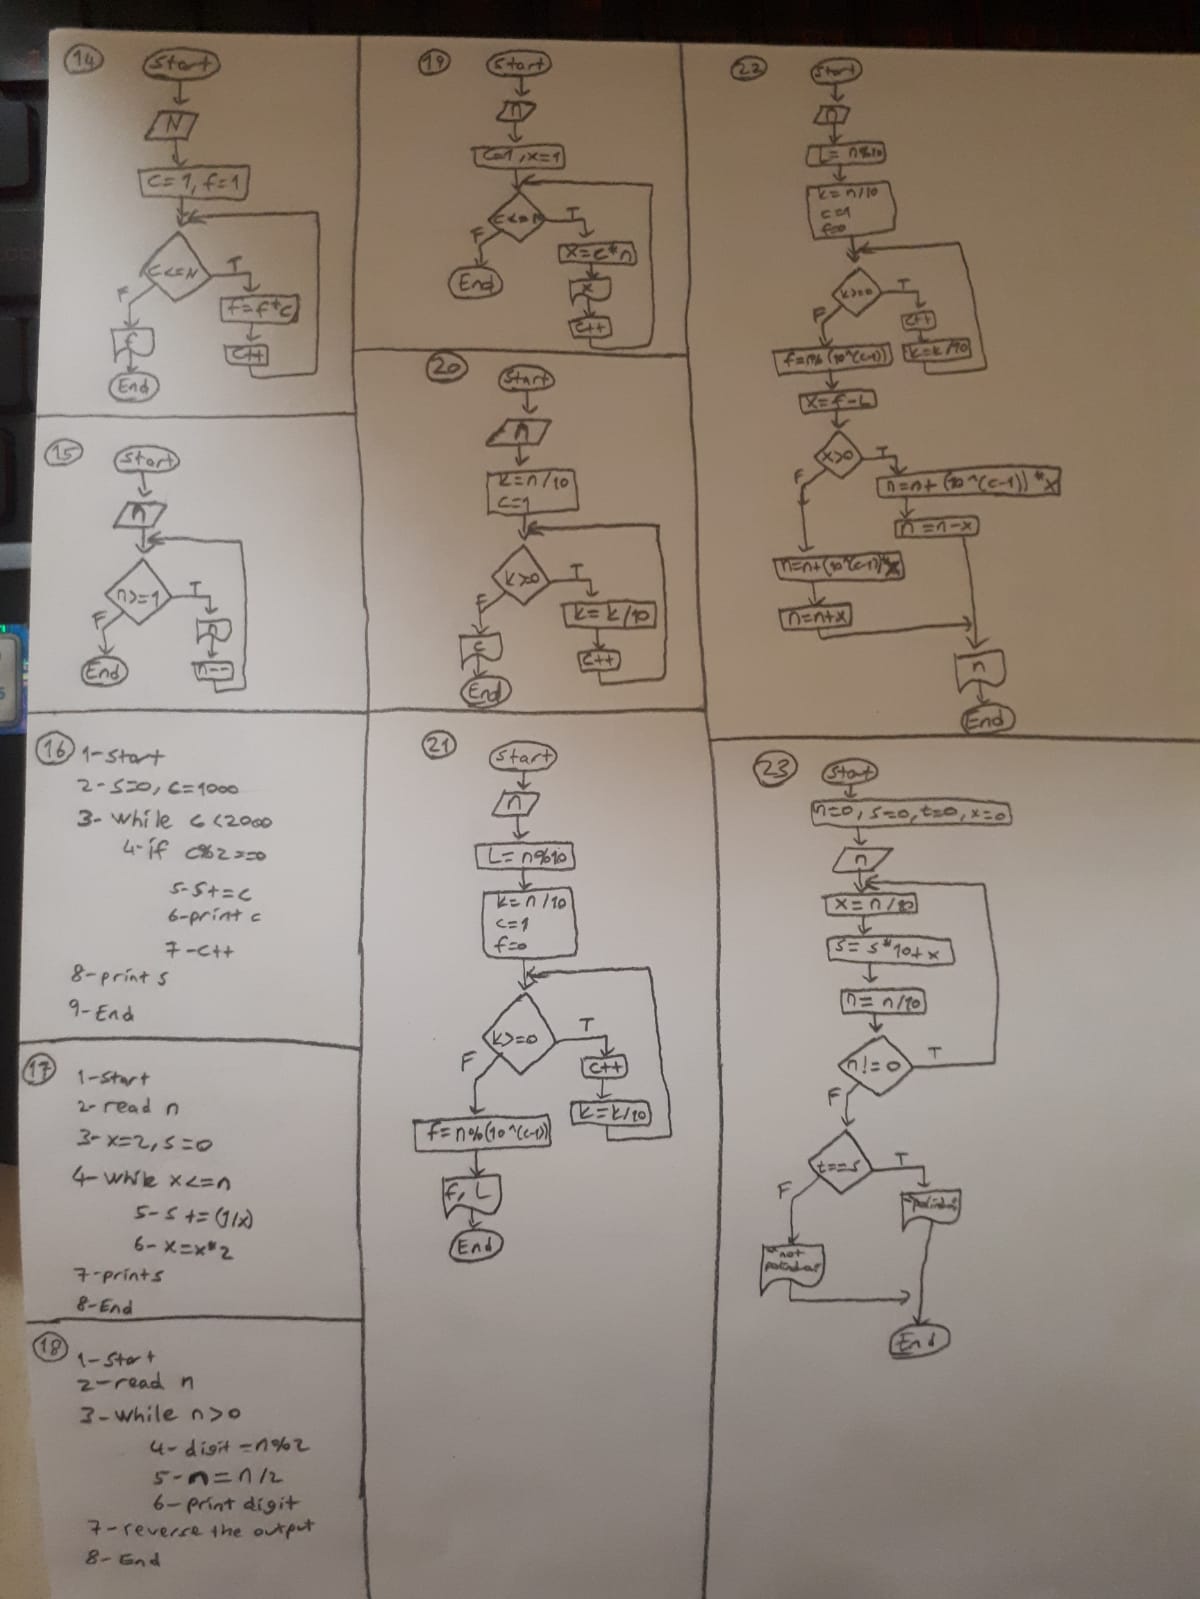 14
Start
N
c=1, f=1
c<=N
T
F
f=f*c
c++
f
End
15
Start
n
n>=1
T
F
n
n--
End
16
1-Start
2-s=0, c=1000
3- while c<2000
4-if c%2==0
5-s+=c
6-print c
7-c++
8-print s
9-End
17
1-Start
2-read n
3-x=2, s=0
4-while x<=n
5-s+=(1/x)
6-x=x*2
7-print s
8-End
18
1-Start
2-read n
3-while n>0
4-digit=n%2
5-n=n/2
6-print digit
7-reverse the output
8-End
19
Start
n
c=1, x=1
T
F
x=c*n
x
c++
End
20
Start
n
k=n/10
c=1
T
F
k=k/10
c++
c
End
21
Start
n
L=n%10
k=n/10
c=1
f=0
k>=0
T
F
c++
k=k/10
f=n%(10^(c-1))
f, L
End
22
Start
n
L=n%10
k=n/10
c=1
f=0
k>=0
T
F
c++
k=k/10
x=f-L
x>0
T
F
n=n+(10^(c-1))*x
n=n-x
n=n+x
n
End
23
Start
n=0, s=0, t=0, x=0
n
x=n/10
s=s*10+x
n=n/10
n!=0
T
F
t==s
T
F
"not
End